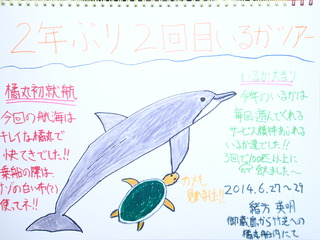 2年ぶり2回目いるかツアー
橘丸初就航
今回の航海は
キレイな橘丸で
快てきでした!!
乗船の際は
ナゾの白い布(?)
使ってネ!!
いるか大きり
今年のいるかは
毎回遊んでくれる
サービス精神あふれる
いるか達でした!!
3回で100匹以上に
会えました〜
カメも
見れました!!
2014.6.27〜29
緒方 英明
御蔵島から竹芝への
橘丸船内にて